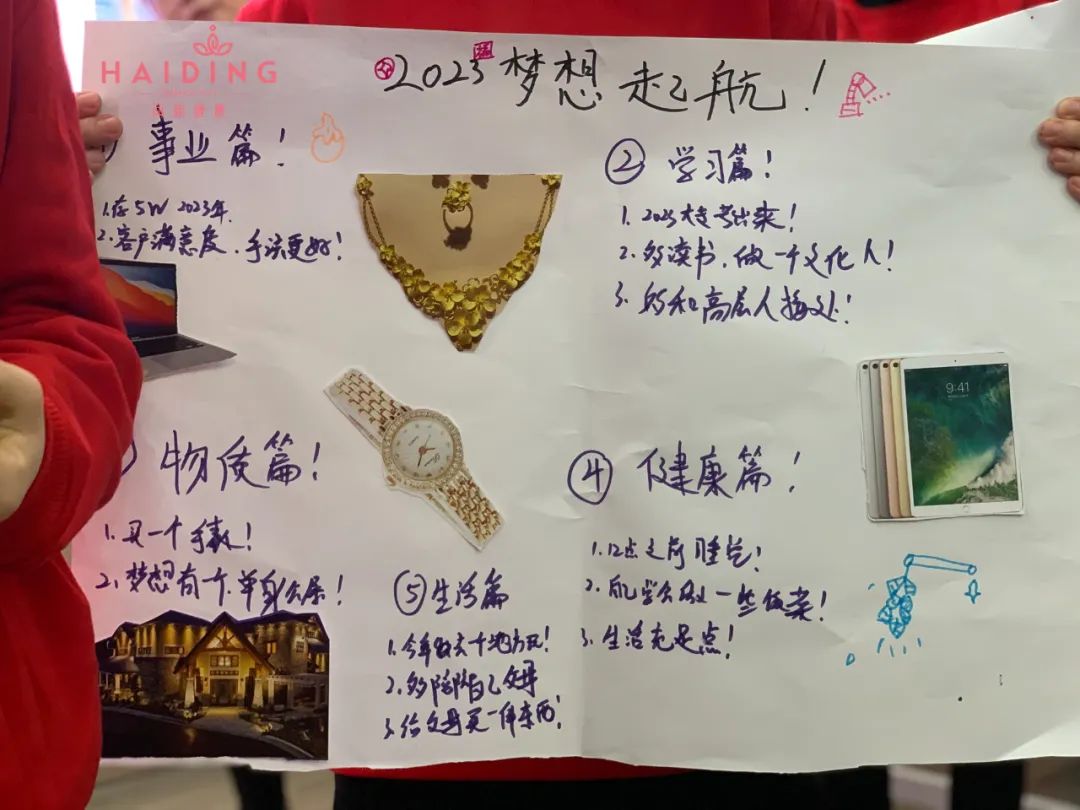 HAIDING
2023梦想起航!
事业篇!
1.存5W 2023年.
2.客户满意度.手法更好!
② 学习篇!
1. 2023大专考出来!
2.多读书.做一个文化人!
3.多和高层人接处!
9:41
物质篇!
1.买一个手表!
2.梦想有个单身公寓!
④ 健康篇!
1.12点之前睡觉!
2.自己学会做一些饭菜!
3.生活充足点!
⑤生活篇
1.今年敢去一个地方玩!
2.多陪陪自己父母
3.给父母买一件东西!